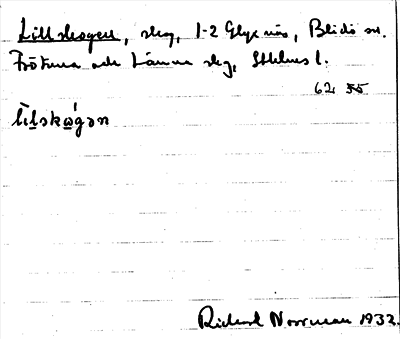 Lillskogen, skog, 1-2 Glyxnäs, Blidö sn.
Frötuna och Länna skg, Sthlms l.
62 55
lìlskω´gən
Richard Norrman 1932.